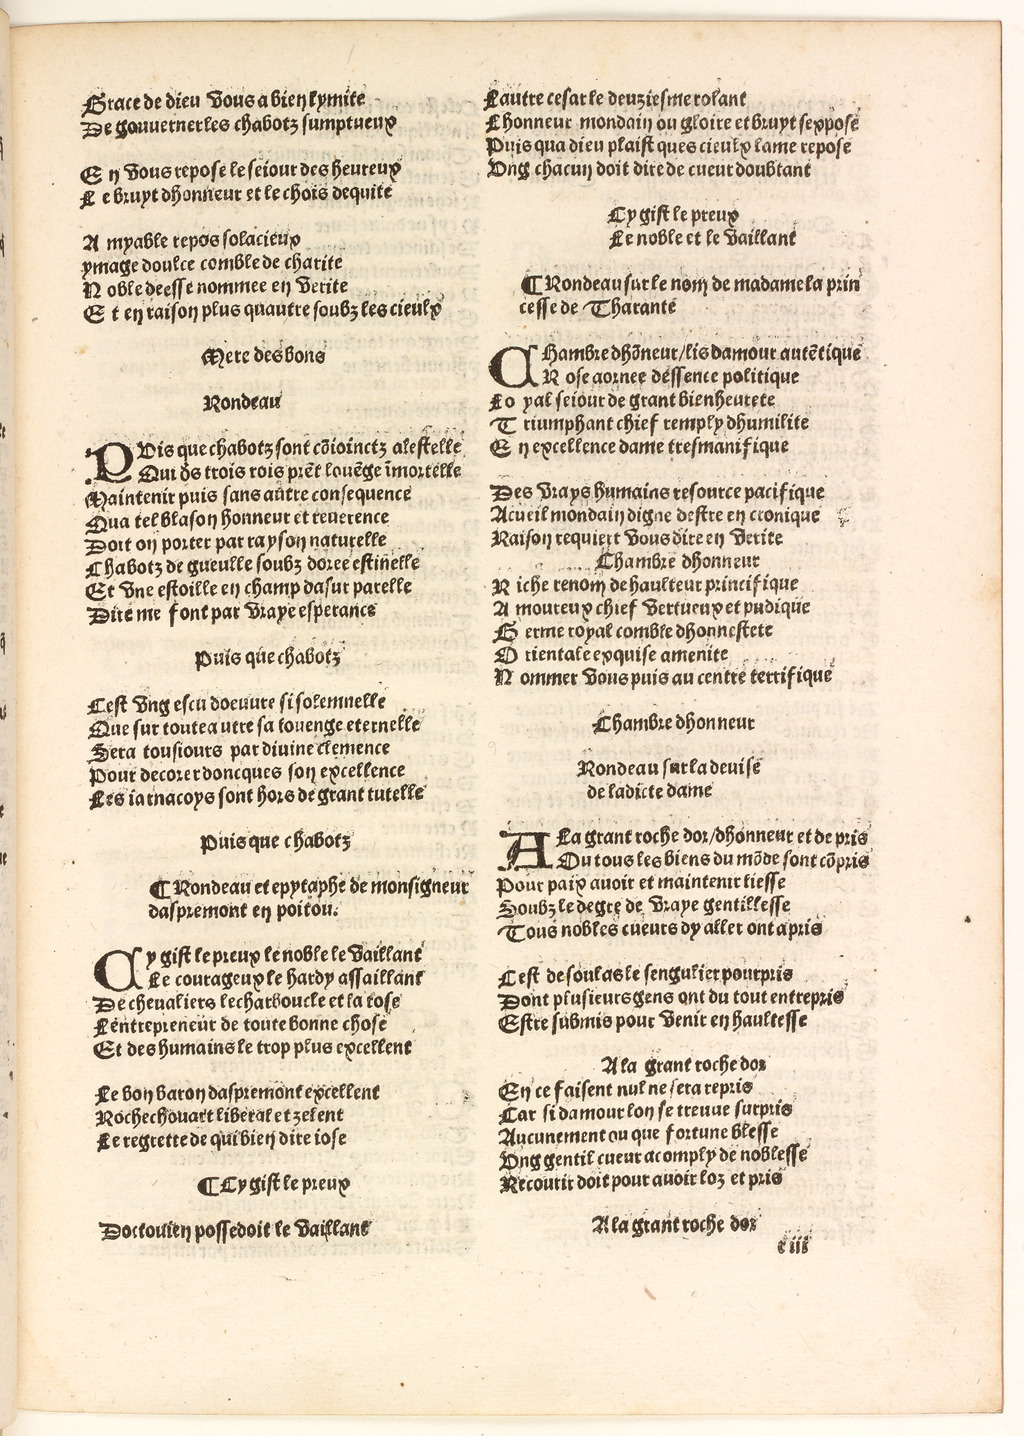 Grace de dieu vous a bien lymite
De gouverner les chabotz sumptueux
E n vous repose le seiour des heureux
L e bruyt dhonneur et le chois dequite
A myable repos solacieux
ymage doulce comble de charite
N oble deesse nommee en verite
E t en raison plus quautre soubz les cieulx
Mere des bons
Rondeau
PVis que chabotz sont cōioinctz a lestelle
Qui des trois rois prēt louēge īmortelle
Maintenir puis sans autre consequence
Qua tel blason honneur et reuerence
Doit on porter par rayson naturelle
Chabotz de gueulle soubz doree estinelle
Et vne estoille en champ dasur patelle
Dire me font par vraye esperance
Puis que chabotz
Cest vng escu doeuure si solemnelle
Que sur toute a utre sa louenge eternelle
Sera tousiours par diuine clemence
Pour decorer doncques son excellence
Les iarnacoys sont hors de grant tutelle
Puis que chabotz
¶ Rondeau et epytaphe de monsigneur
daspremont en poitou.
Cy gist le preux le noble le vaillant
Le courageux le hardy assaillant
De chevaliers lecharboucle et la rose
Lentrepreneur de toute bonne chose
Et des humains le trop plus excellent
Le bon baron daspremont excellent
Rochechouart liberal et zelent
Le regrette de qui bien dire iose
¶ Cy gist le preux
Doctouien possedoit le vaillant
Lautre cesar le deuziesme rolant
Lhonneur mondain ou gloire et bruyt sexpose
Puis qua dieu plaist ques cieulx lame repose
Vng chacun doit dire de cueur doubtant
Cy gist le preux
Le noble et le vaillant
¶ Rondeau sur le nom de madame la prin
cesse de Tharante
CHambre dhōneur/lis damour autētique
R ose aornee dessence politique
Lo yal seiour de grant bienheurete
T riumphant chief remply dhumilite
E n excellence dame tresmanifique
Des vrays humains resource pacifique
Acueil mondain digne destre en cronique
Raison requiert vous dire en verite
Chambre dhonneur
R iche renom de haulteur principique
A moureux chief vertueux et pudique
G erme royal comble dhonnestete
O rientale exquise amenite
N ommer vous puis au centre terrifique
Chambre dhonneur
Rondeau sur la deuise
de ladicte dame
A La grant roche dor/dhonneur et de pris
Ou tous les biens du mōde sont cōpris
Pour paix auoir et maintenir liesse
Soubz le degre de vraye gentillesse
Tous nobles cueurs dy aller ont apris
Cest de soulas le sengulier pourpris
Dont plusieurs gens ont du tout entrepris
Estre submis pour venir en haultesse
A la grant roche dor
En ce faisent nul ne sera repris
Car si damour lon se treuue surpris
Aucunement ou que fortune blesse
Vng gentil cueur acomply de noblesse
Recourir doit pour auoir loz et pris
A la grant roche dor
c iii